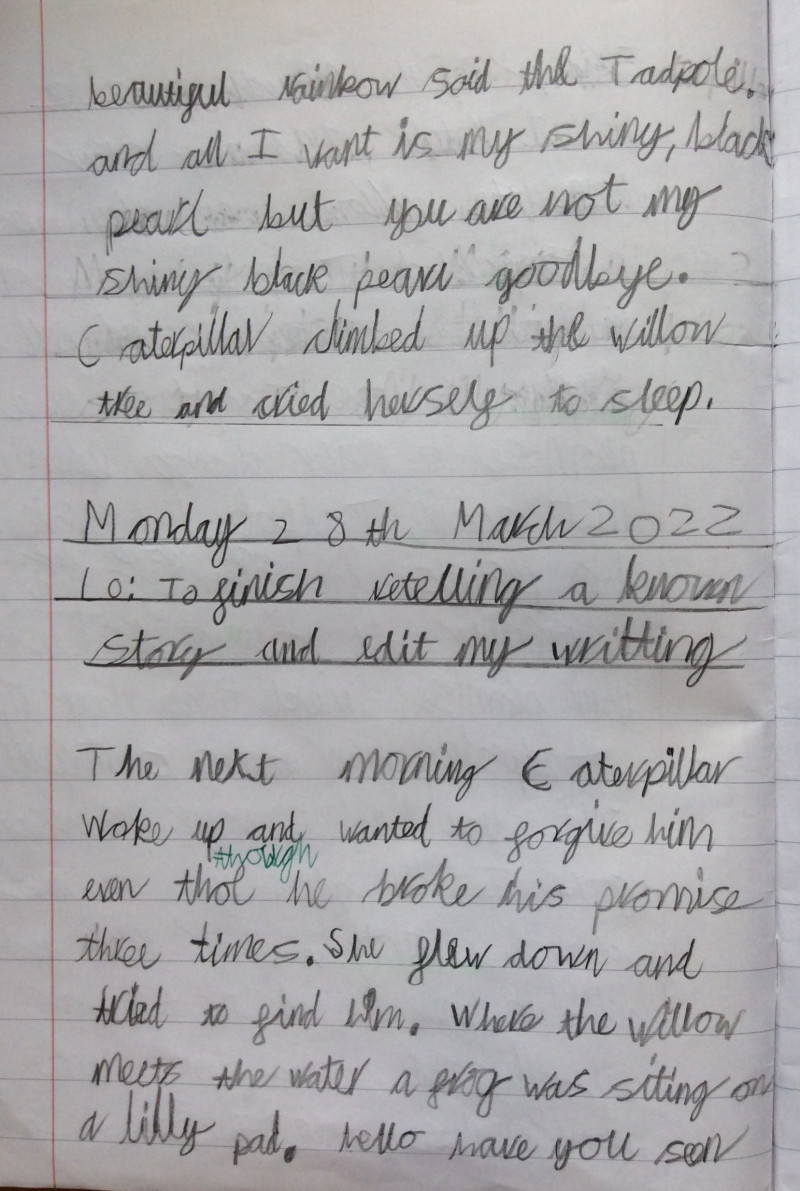 beautiful rainbow said the Tadpole.
and all I want is my shiny, black
pearl but you are not my
shiny black pearl" goodbye.
Caterpillar climbed up the willow
tree and cried herself to sleep.
Monday 28th March 2022
Lo: To finish retelling a known
story and edit my writting
The next morning Caterpillar
Woke up and wanted to forgive him
though
even thol he broke his promise
three times. She flew down and
tried to find him. Where the willow
meets the water a frog was siting on
a lilly pad. hello have you seen